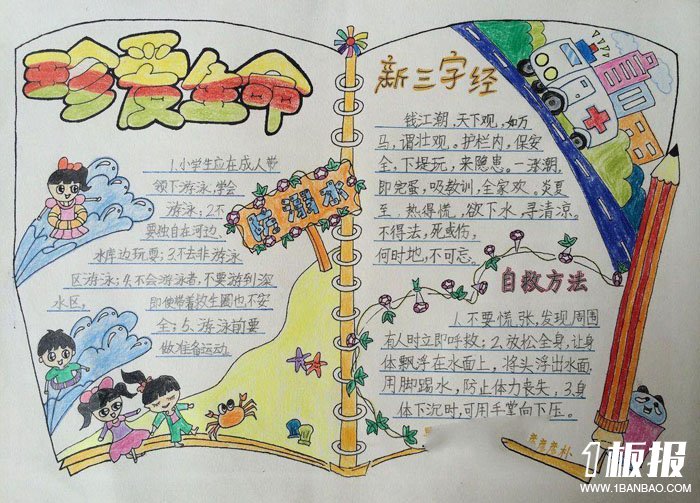 珍爱生命
1.小学生应在成人带
领下游泳,学会
游泳;2.不
要独自在河边、
水库边玩耍;3.不去非游泳
区游泳;4.不会游泳者,不要游到深
水区,即使带着救生圈也不安
全;5、游泳前要
做准备运动
防溺水
新三字经
钱江潮,天下观,如万
马,谓壮观。护栏内,保安
全,下堤玩,来隐患。一涨潮,
即完蛋,吸教训,全家欢,炎夏
至,热得慌,欲下水,寻清凉。
不得法,死或伤,
何时地,不可忘。
自救方法
1.不要慌张,发现周围
有人时立即呼救;2、放松全身,让身
体飘浮在水面上,将头浮出水面,
用脚踢水,防止体力丧失,3.身
体下沉时,可用手掌向下压。
1板报
WWW.1BANBAO.COM